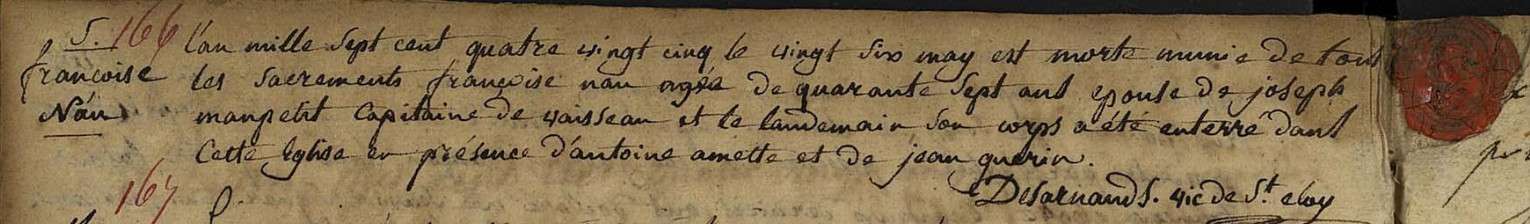 S. 166 L'an mille Sept cent quatre vingt cinq le vingt Six may est morte munie de tous
francoise les Sacrements françoise nau agée de quarante Sept ans epouse de joseph
Nau manpetit Capitaine de vaisseau et le landemain son corps a été enterré dans
Cette Eglise en présence d'antoine amette et de jean guerin.
Desarnauds. vic de St. eloy
167